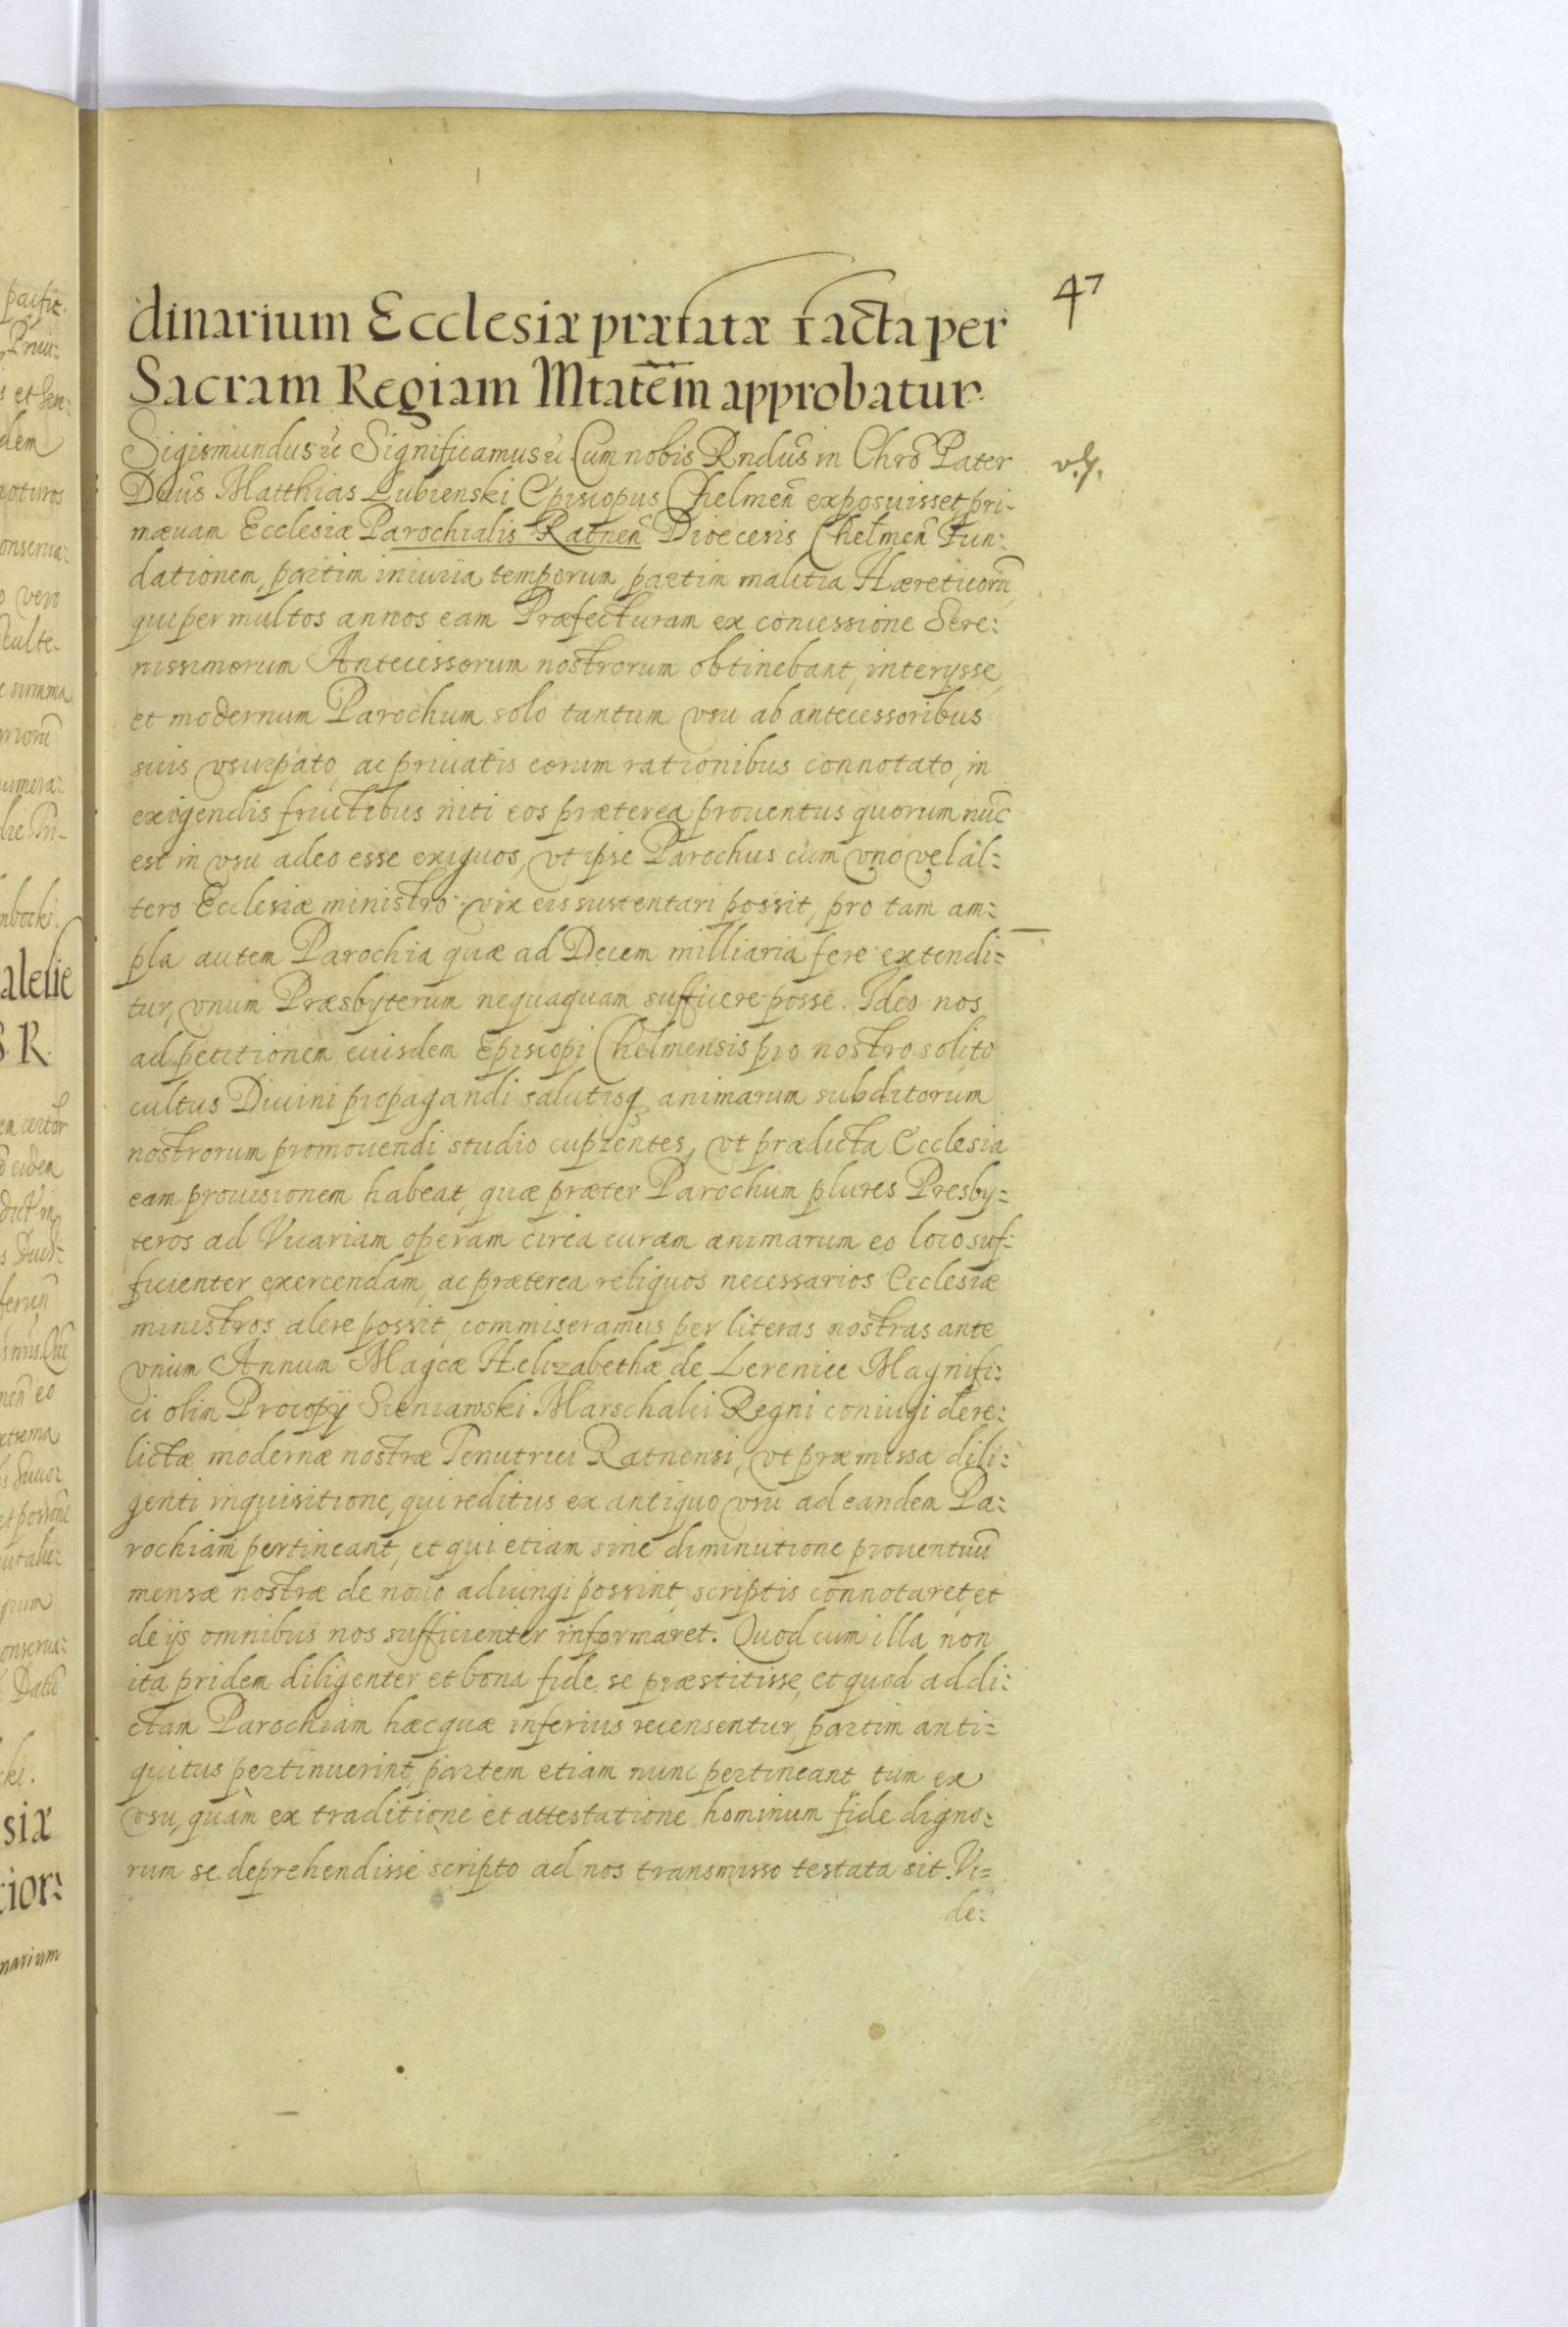 47
dinarium Ecclesiæ præfatæ facta per
Sacram Regiam Mtatem approbatur.
Sigismundus etc Significamus etc Cum nobis Rndus in Chro Pater
Dnus Matthias Lubienski Episcopus Chelmen exposuisset, pri-
mæuam Ecclesiæ Parochialis Ratnen Dioecesis Chelmen Fun:
dationem, partim iniuria temporum partim malitia Hæreticorū,
qui per multos annos eam Præfecturam ex concessione Sere:
nissimorum Antecessorum nostrorum obtinebant, interysse,
et modernum Parochum solo tantum vsu ab antecessoribus
suis vsurpato, ac priuatis eorum rationibus connotato, in
exigendis fructibus niti eos præterea prouentus quorum nūc
est in vsu adeo esse exiguos, vt ipse Parochus cum vno vel al-
tero Ecclesiæ ministro vix eis sustentari possit, pro tam am:
pla autem Parochia quæ ad Decem milliaria fere extendi=
tur, vnum Præsbyterum nequaquam sufficere posse. Ideo nos
ad petitionem eiusdem Episcopi Chelmensis pro nostro solito
cultus Diuini propagandi salutisq animarum subditorum
nostrorum promouendi studio cupientes, vt prædicta Ecclesia
eam prouisionem habeat, quæ præter Parochum plures Presby=
teros ad Vicariam operam circa curam animarum eo loco suf:
ficienter exercendam, ac præterea reliquos necessarios Ecclesiæ
ministros alere possit, commiseramus per literas nostras ante
vnum Annum Magcæ Helizabethæ de Lereniee Magnifi:
ci olim Procopij Sieniawski Marschalci Regni coniugi dere:
lictæ modernæ nostræ Tenutrici Ratnensi, vt præmissa dili:
genti inquisitione, qui reditus ex antiquo vsu ad eandem Pa:
rochiam pertineant, et qui etiam sine diminutione prouentuū
mensæ nostræ de nouo adiungi possint, scriptis connotaret, et
de ijs omnibus nos sufficienter informaret. Quod cum illa non
ita pridem diligenter et bona fide se præstitisse, et quod ad di:
ctam Parochiam hæc quæ inferius recensentur, partim anti=
quitus pertinuerint, partem etiam nunc pertineant tum ex
vsu, quàm ex traditione et attestatione hominum fide digno:
rum se deprehendisse scripto ad nos transmisso testata sit. Vi=
de: